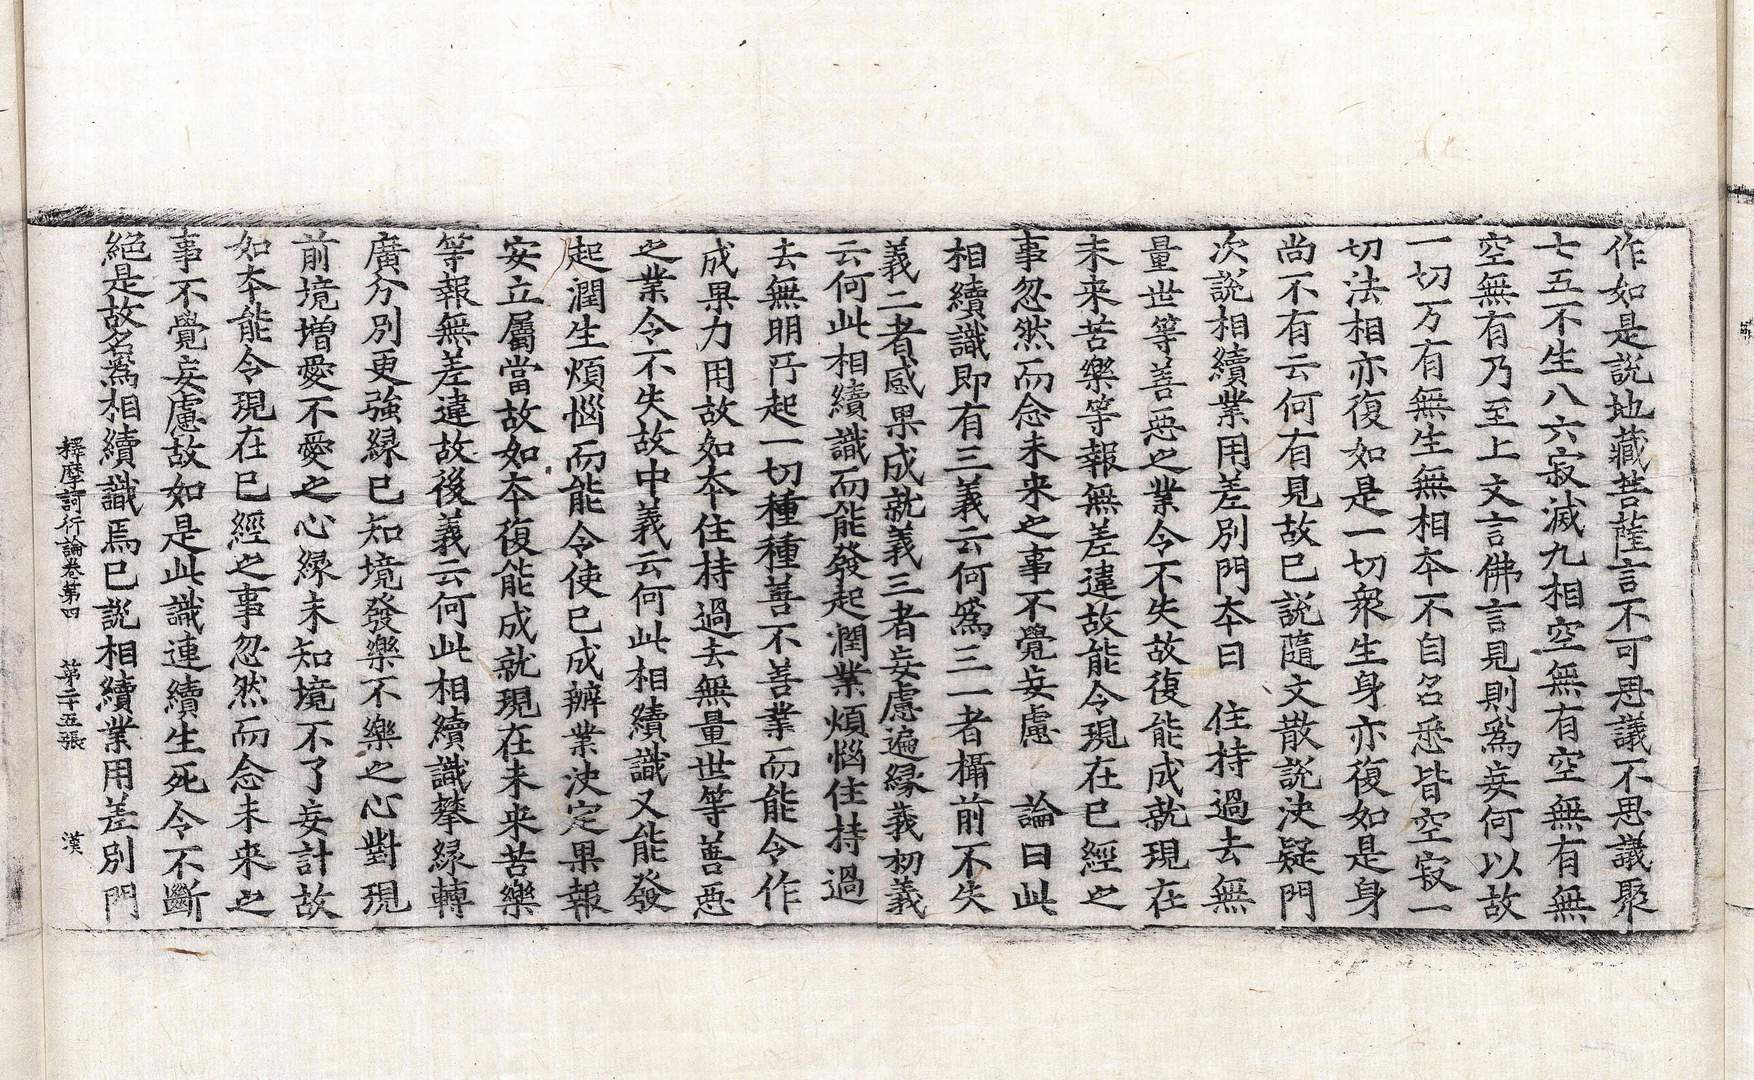 作如是說地藏菩薩言不可思議不思議聚
七五不生八六寂滅九相空無有空無有無
空無有乃至上文言佛言見則爲妄何以故
一切万有無生無相夲不自名悉皆空寂一
切法相亦復如是一切衆生身亦復如是身
尚不有云何有見故已說隨文散說決疑門
次說相續業用差別門夲曰　住持過去無
量世等善惡之業令不失故復能成就現在
未来苦樂等報無差違故能令現在已經之
事忽然而念未来之事不覺妄慮　論曰此
相續識即有三義云何爲三一者攝前不失
義二者感果成就義三者妄慮遍縁義初義
云何此相續識而能發起潤業煩惱住持過
去無明所起一切種種善不善業而能令作
成果力用故如夲住持過去無量世等善惡
之業令不失故中義云何此相續識又能發
起潤生煩惱而能令使已成辦業決定果報
安立屬當故如夲復能成就現在未来苦樂
等報無差違故後義云何此相續識攀縁轉
廣分別更強緣已知境發樂不樂之心對現
前境增愛不愛之心緣未知境不了妄計故
如夲能令現在已經之事忽然而念未来之
事不覺妄慮故如是此識連續生死令不斷
絕是故名爲相續識焉已說相續業用差別門
釋摩訶衍論卷第四　第二十五張　漢